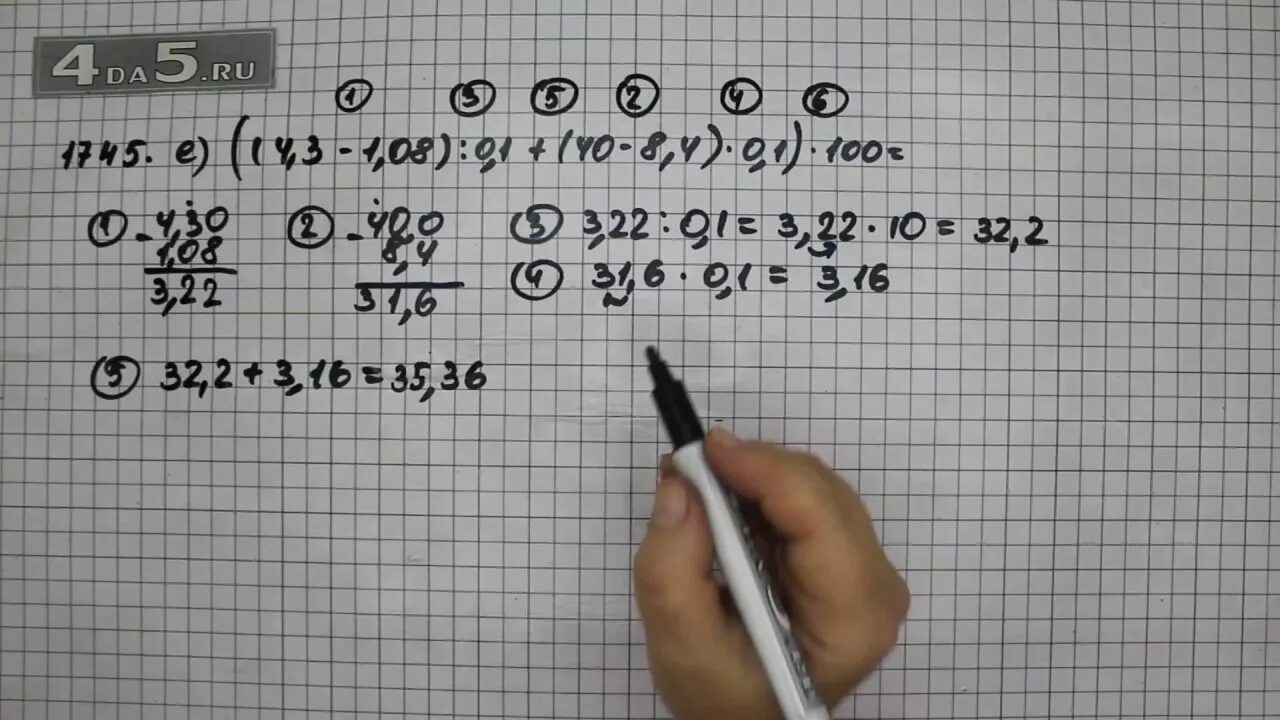 4DA5.RU
① ③ ⑤ ② ④ ⑥
1745. е) ((4,3 - 1,08) : 0,1 + (40 - 8,4) · 0,1) · 100 =
① 4,30 ② 40,0 ③ 3,22 : 0,1 = 3,22 · 10 = 32,2
- 1,08 - 8,4 ④ 31,6 · 0,1 = 3,16
3,22 31,6
⑤ 32,2 + 3,16 = 35,36